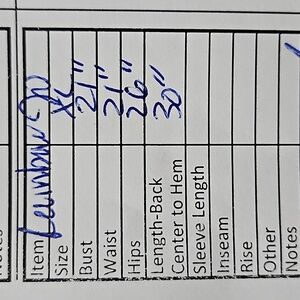 Notes
Item
Size XL
Bust 21"
Waist 21"
Hips 26"
Length-Back 30"
Center to Hem
Sleeve Length
Inseam
Rise
Other
Notes